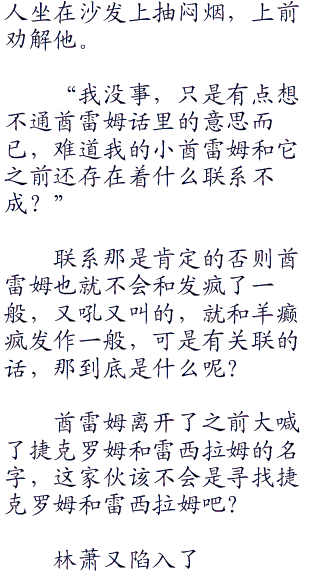 人坐在沙发上抽闷烟，上前
劝解他。
“我没事，只是有点想
不通酋雷姆话里的意思而
已，难道我的小酋雷姆和它
之前还存在着什么联系不
成？”
联系那是肯定的否则酋
雷姆也就不会和发疯了一
般，又吼又叫的，就和羊癫
疯发作一般，可是有关联的
话，那到底是什么呢？
酋雷姆离开了之前大喊
了捷克罗姆和雷西拉姆的名
字，这家伙该不会是寻找捷
克罗姆和雷西拉姆吧？
林萧又陷入了